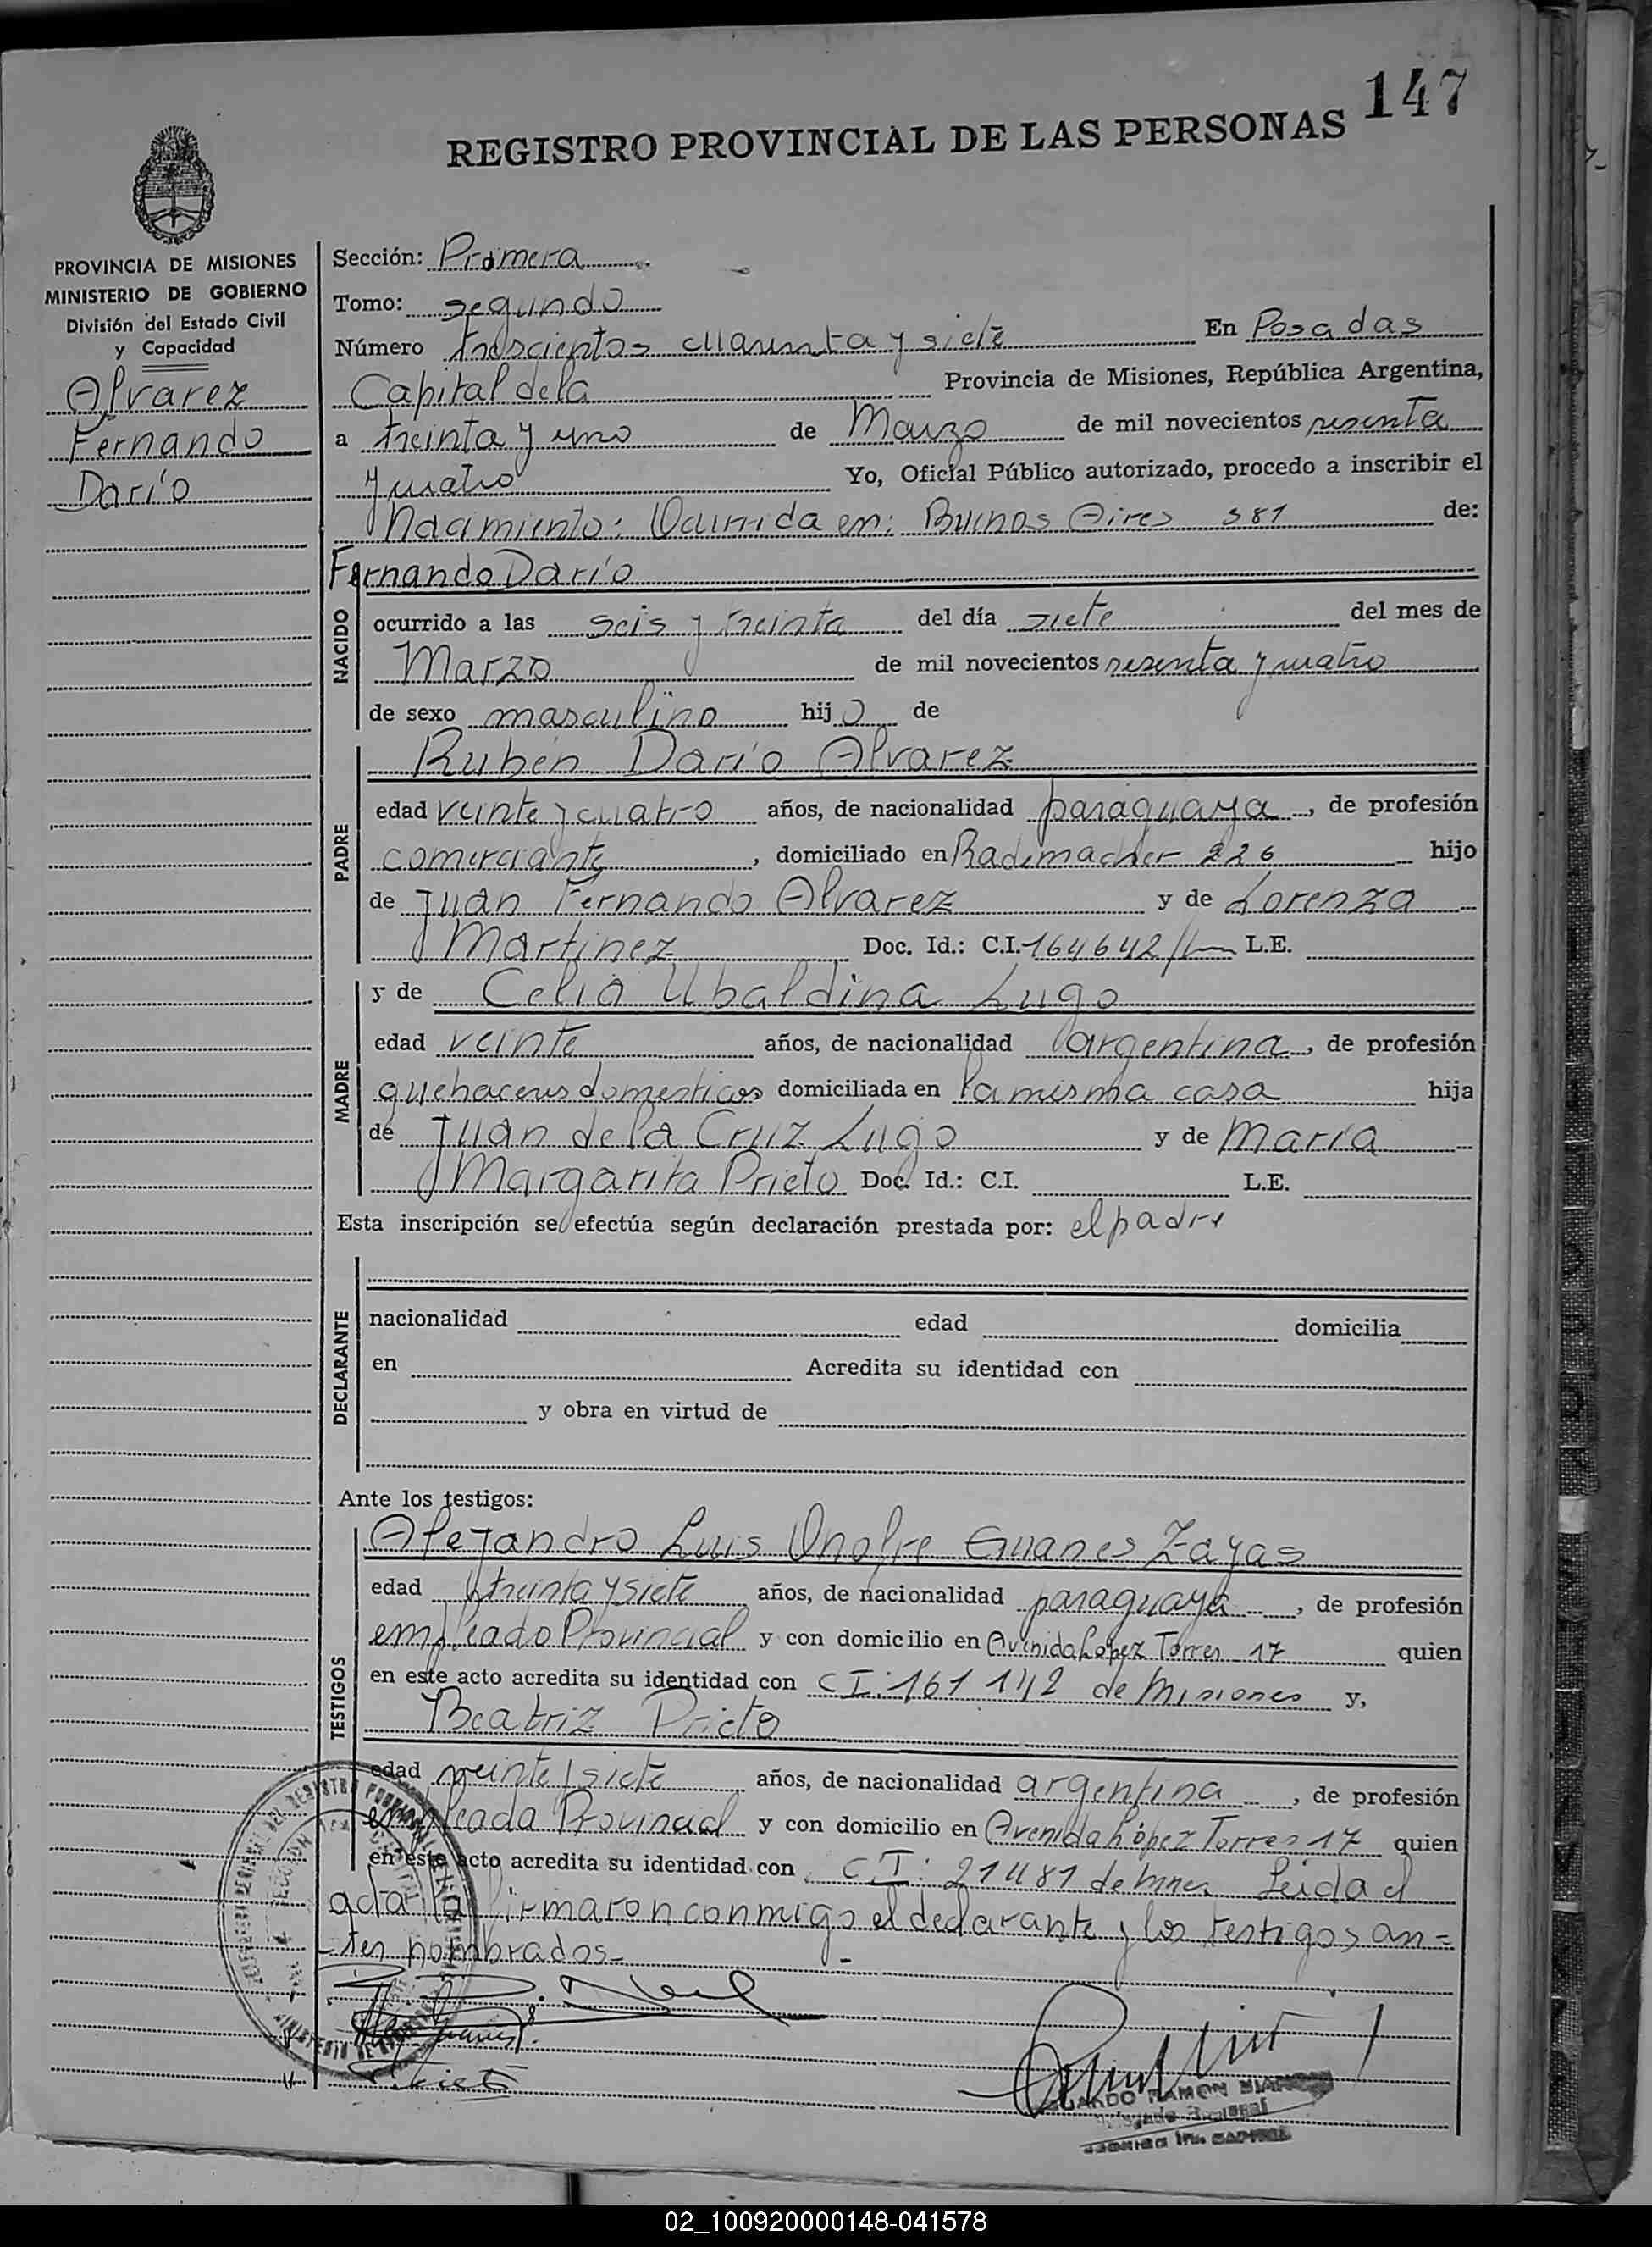 147
REGISTRO PROVINCIAL DE LAS PERSONAS
PROVINCIA DE MISIONES
MINISTERIO DE GOBIERNO
División del Estado Civil
y Capacidad
Alvarez
Fernando
Darío
Sección: Primera
Tomo: segundo
Número trescientos cuarenta y siete En Posadas
Capital de la Provincia de Misiones, República Argentina,
a treinta y uno de Marzo de mil novecientos sesenta
y cuatro Yo, Oficial Público autorizado, procedo a inscribir el
Nacimiento: Ocurrida en: Buenos Aires 381 de:
Fernando Darío
NACIDO
ocurrido a las seis y treinta del día siete del mes de
Marzo de mil novecientos sesenta y cuatro
de sexo masculino hijo de
Rubén Darío Alvarez
PADRE
edad veinte y cuatro años, de nacionalidad paraguaya, de profesión
comerciante, domiciliado en Rademacher 226 hijo
de Juan Fernando Alvarez y de Lorenza
Martinez Doc. Id.: C.I. 164642 L.E.
y de Celia Ubaldina Lugo
MADRE
edad veinte años, de nacionalidad argentina, de profesión
quehaceres domesticos domiciliada en la misma casa hija
de Juan de la Cruz Lugo y de María
Margarita Prieto Doc. Id.: C.I. L.E.
Esta inscripción se efectúa según declaración prestada por: el padre
DECLARANTE
nacionalidad edad domicilia
en Acredita su identidad con
y obra en virtud de
Ante los testigos:
Alejandro Luis Onofre Guanes Zayas
TESTIGOS
edad treinta y siete años, de nacionalidad paraguaya, de profesión
empleado Provincial y con domicilio en Avenida López Torres 17 quien
en este acto acredita su identidad con C I: 161 142 de Misiones y,
Beatriz Prieto
edad veinte y siete años, de nacionalidad argentina, de profesión
empleada Provincial y con domicilio en Avenida López Torres 17 quien
en este acto acredita su identidad con C I: 21481 de Mnes. Leida el
acta la firmaron conmigo el declarante y los testigos an=
tes nombrados.-
02_100920000148-041578